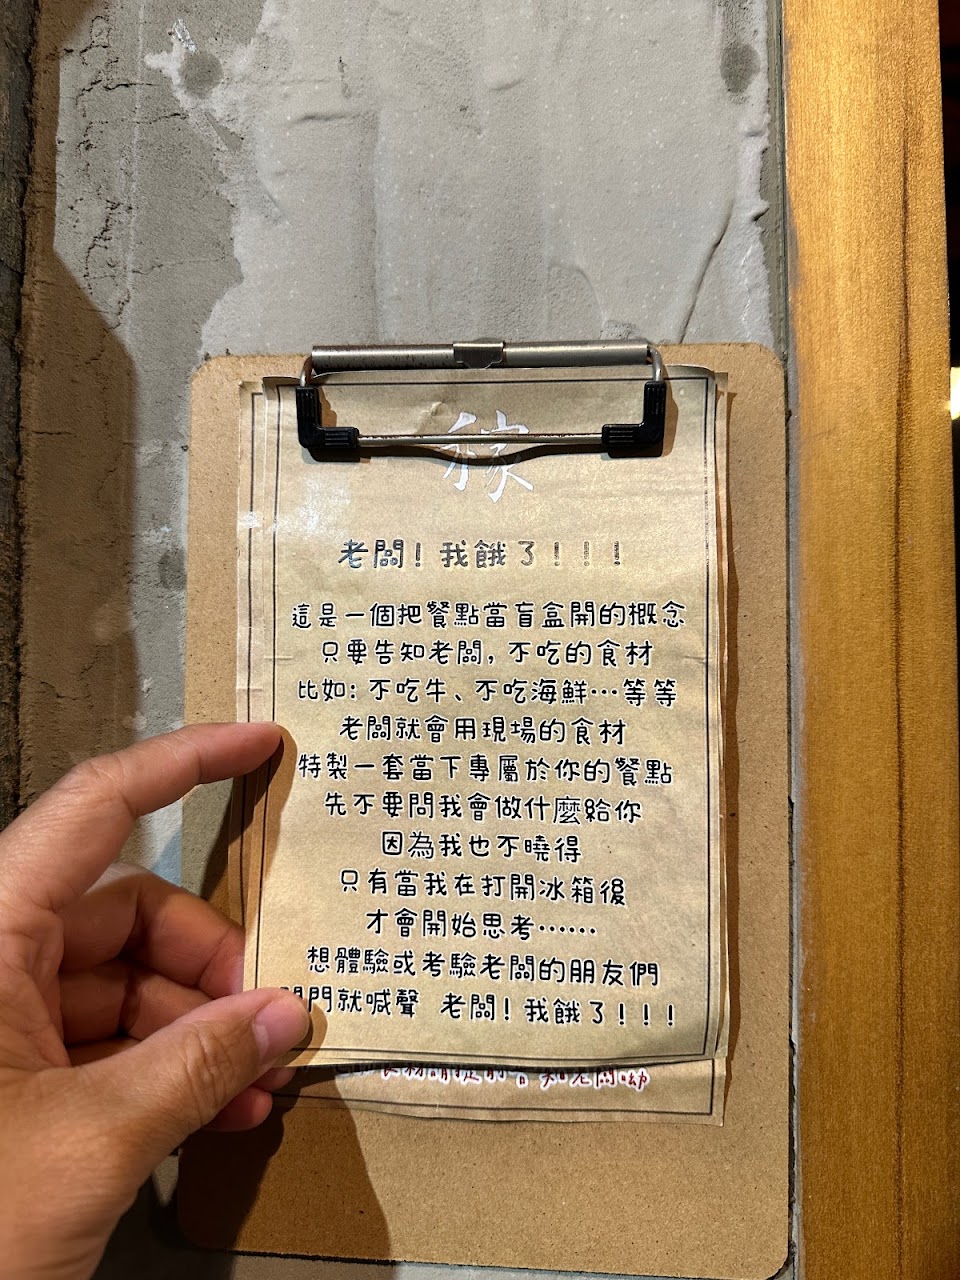 稼
老闆！我餓了！！！
這是一個把餐點當盲盒開的概念
只要告知老闆，不吃的食材
比如：不吃牛、不吃海鮮⋯等等
老闆就會用現場的食材
特製一套當下專屬於你的餐點
先不要問我會做什麼給你
因為我也不曉得
只有當我在打開冰箱後
才會開始思考⋯⋯
想體驗或考驗老闆的朋友們
門就喊聲 老闆！我餓了！！！
食材請提前告知老闆呦